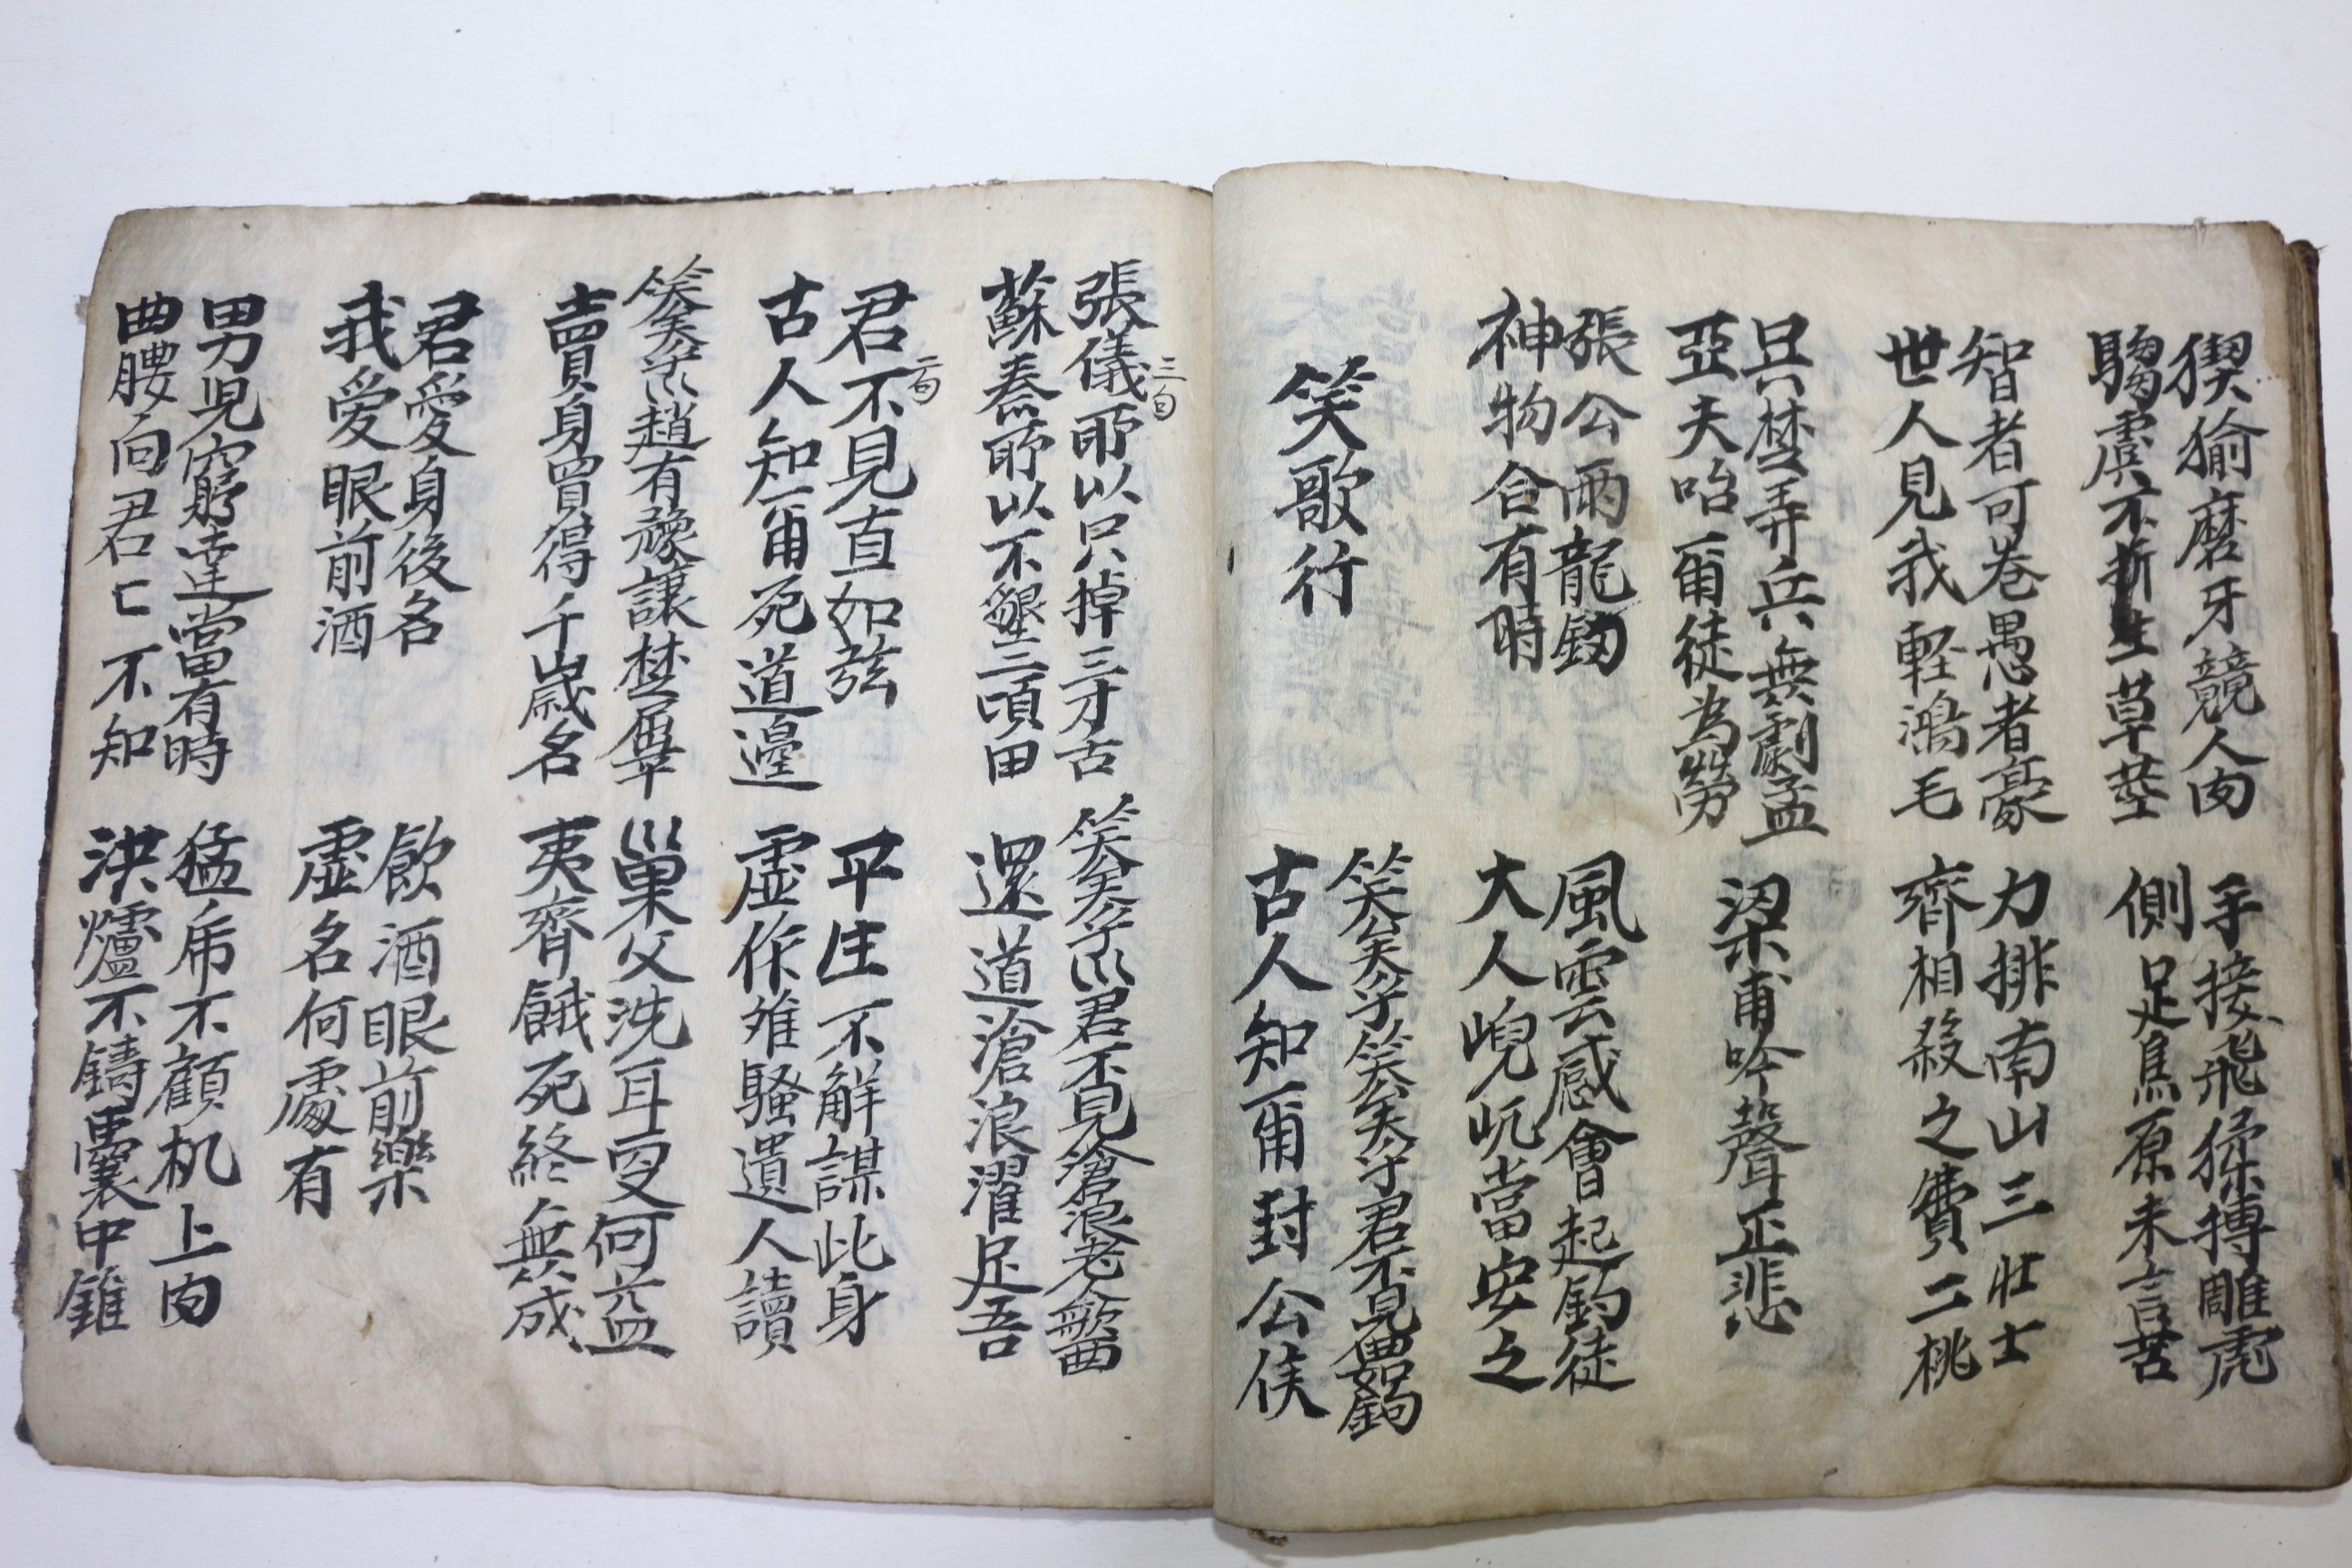 猰㺄磨牙競人肉
騶虞不折生草莖
手接飛猱搏雕虎
側足焦原未言苦
智者可卷愚者豪
世人見我軽鴻毛
力排南山三壯士
齊相殺之費二桃
吳楚弄兵無劇孟
亞夫咍爾徒為勞
梁甫吟聲正悲
張公兩龍釼
神物合有時
風雲感會起釣徒
大人峴屼當安之
笑歌行
笑矣乎笑矣乎君不見曲如鉤
古人知爾封公侯
三句
張儀所以只掉三寸舌
蘇秦所以不墾三頃田
笑矣乎〻君不見滄浪老人歌一曲
還道滄浪濯足吾
二句
君不見直如弦
古人知爾死道邊
平生不解謀此身
虛作離騷遺人讀
笑矣乎〻趙有豫讓楚屈平
賣身買得千歲名
巢父洗耳更何益
夷齊餓死終無成
君愛身後名
我愛眼前酒
飲酒眼前樂
虛名何處有
男児窮達當有時
曲腰向君〻不知
猛虎不顧机上肉
洪爐不鑄囊中錐